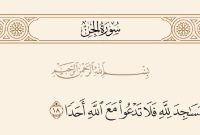 سُورَةُ الجِنِّ
بِسْمِ ٱللَّهِ ٱلرَّحْمَٰنِ ٱلرَّحِيمِ
ٱللَّهِ أَحَدًا ١٨ مَسَٰجِدَ لِلَّهِ فَلَا تَدْعُوا۟ مَعَ